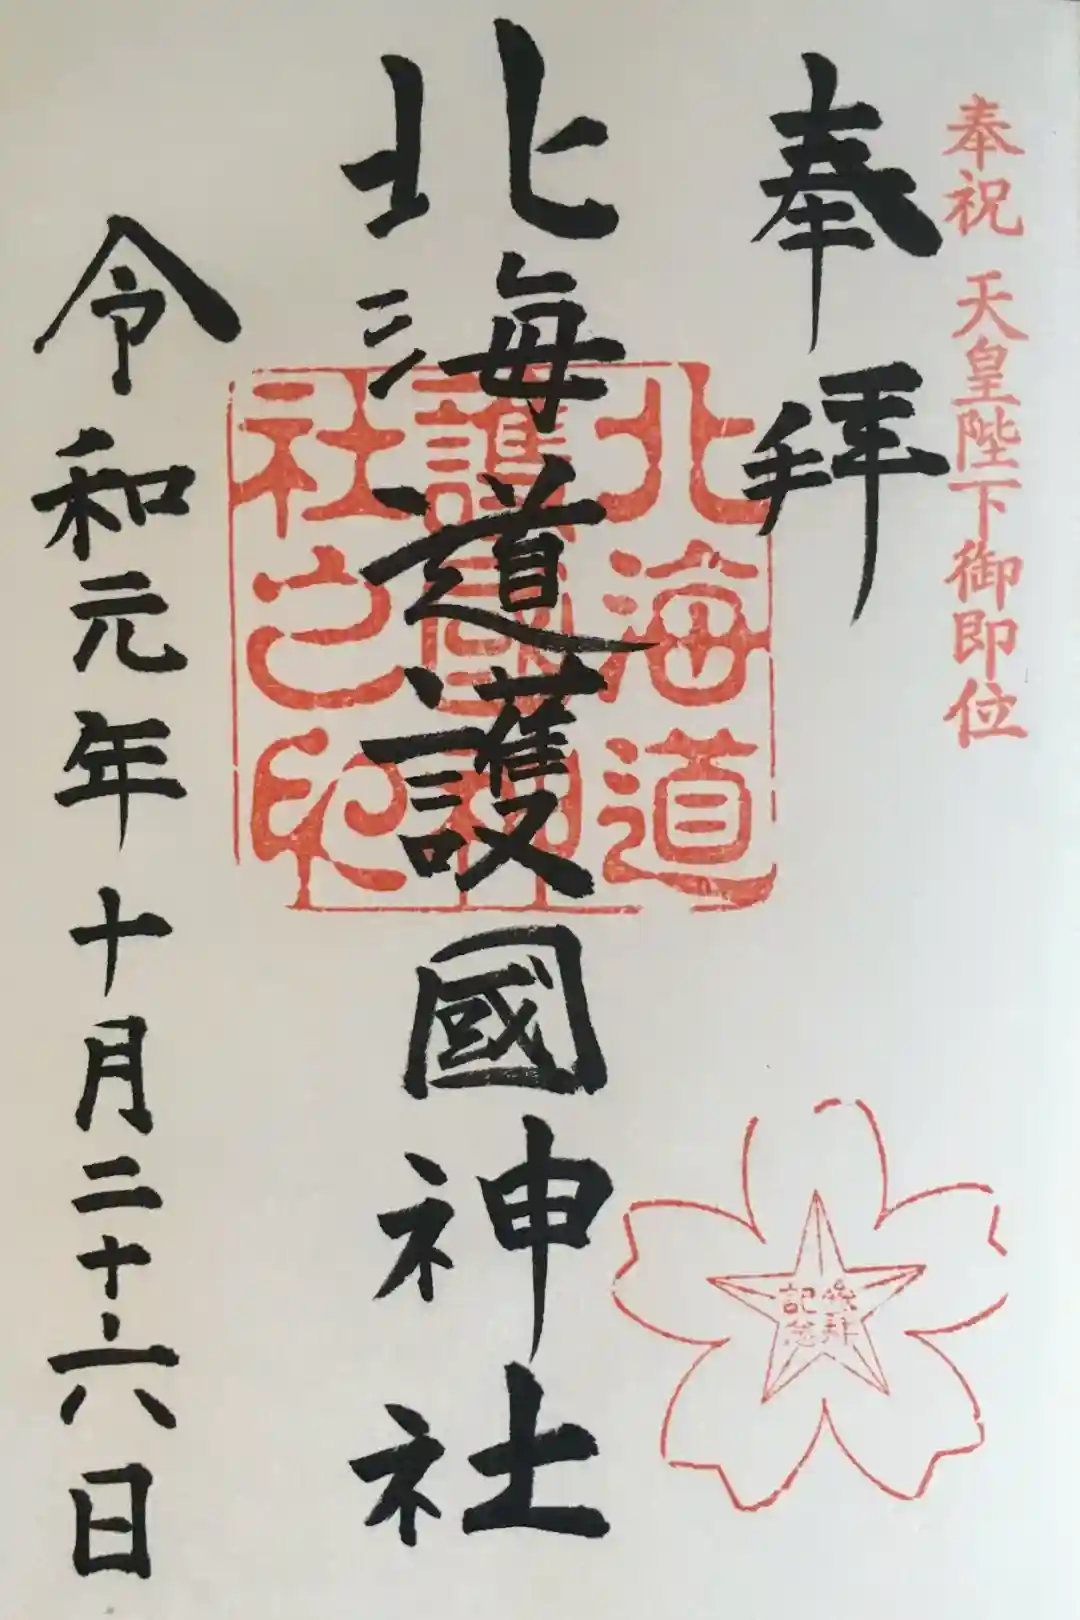 奉祝 天皇陛下御即位
奉拝
北海道護國神社
北海道
護國神
社之印
参拝
記念
令和元年十月二十六日